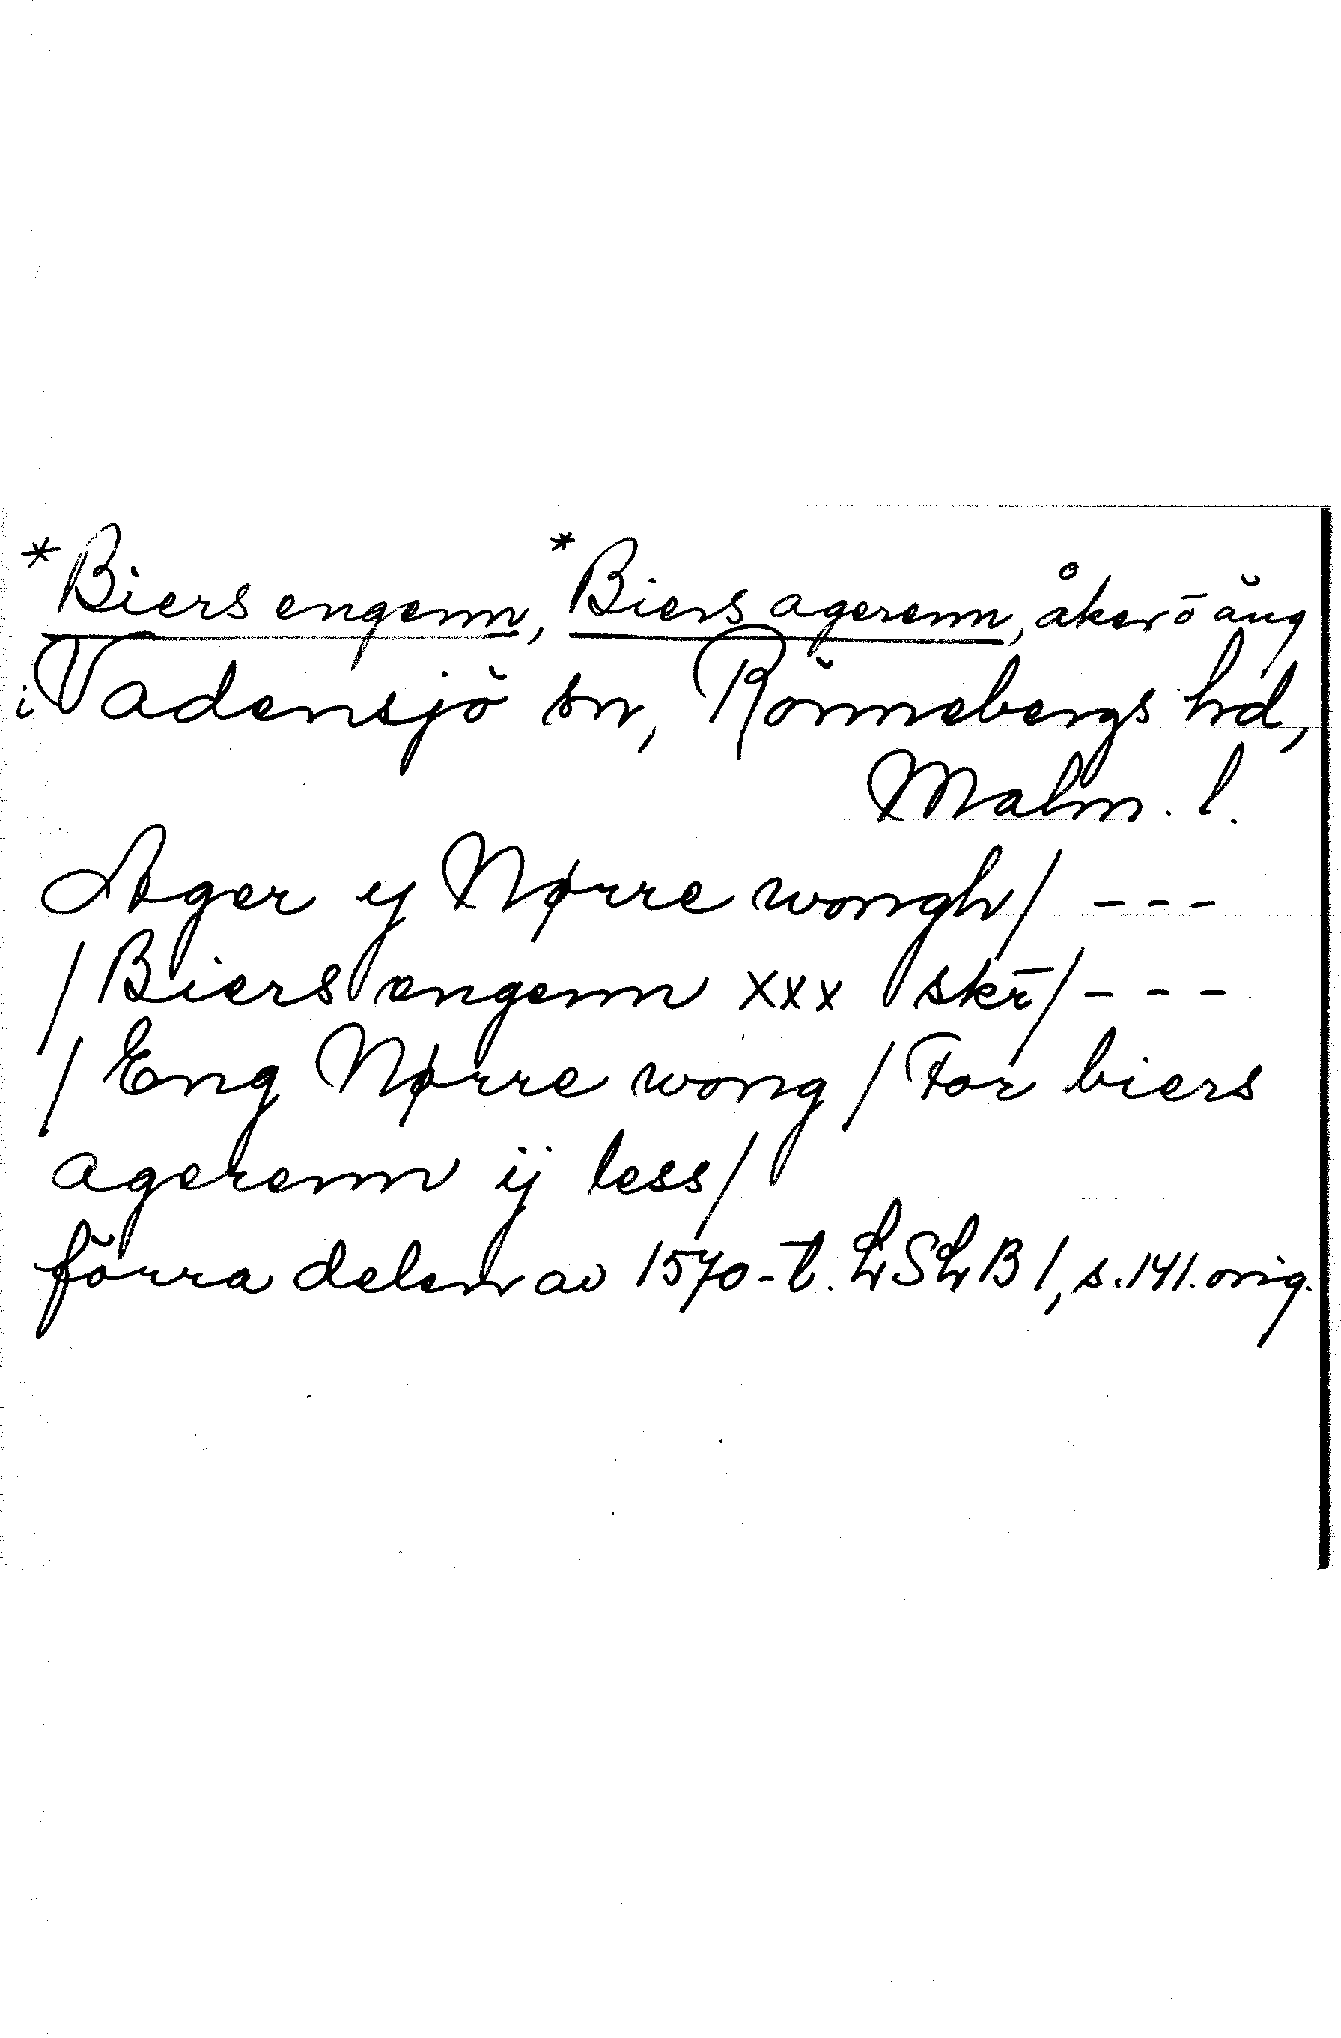 *Biers engenn, *Biers agerenn, åker o äng
i Vadensjö sn, Rönnebergs hd,
Malm. l.
Ager y Nørre wongh/ ---
/Biers engenn xxx skr̄/---
/Eng Nørre wong/For biers
agerenn ij less/
förra delen av 1570-t. LSLB 1, s.141.orig.